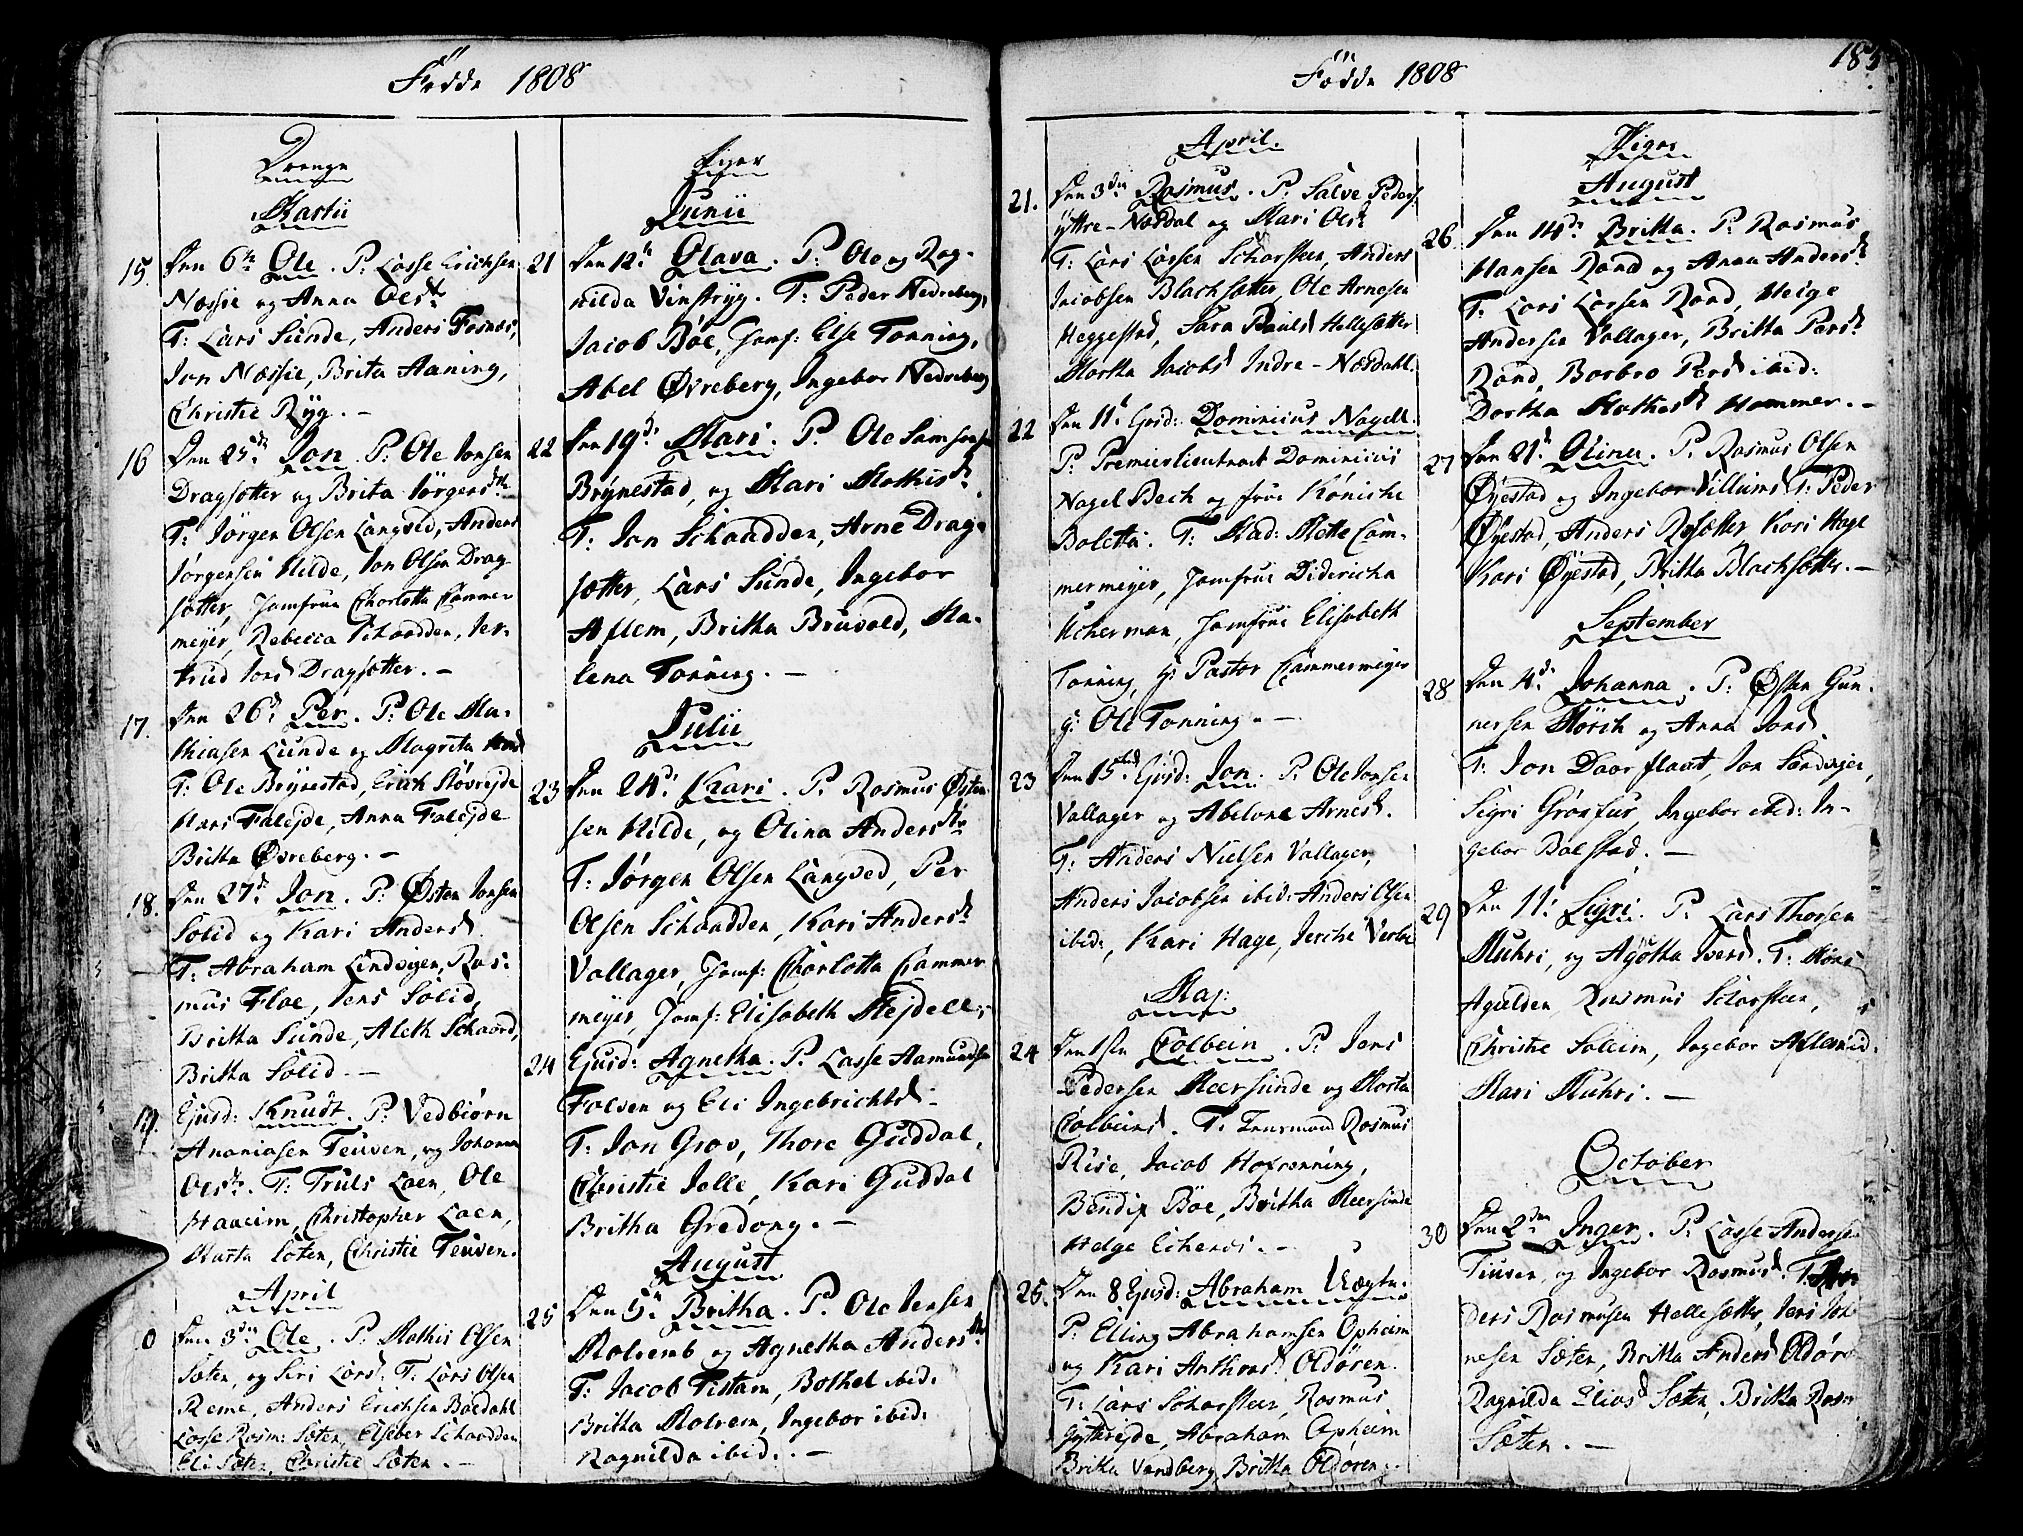 Födde 1808
Drenge
Martii
15. Den 6te Ole. P: Lasse Ericksen
Næssie og Anna Olsdt
T: Lars Sunde, Anders Fosnæs,
Jon Næssie, Brita Aaning,
Christie Ryg. –
16 Den 25de Jon. P: Ole Jonsen
Dragsøtter og Brita Jørgensdtr
T: Jørgen Olsen Langved, Anders
Jørgensen Hilde, Jon Olsen Drag-
søtter, Jomfrue Charlotta Cammer
meyer, Rebecca Schaadden, Jer-
trud Jonsd Dragsøtter. –
17. Den 26de Per. P: Ole Ma-
thiasen Lunde og Magrita
T: Ole Brynestad, Erich Støvrejde
Hans Falejde, Anna Falejde
Britha Øvreberg. –
18. Den 27de Jon. P: Østen Jonsen
Solid og Kari Andersd.
T: Abraham Lindvigen, Ras-
mus Floe, Jens Solid,
Britha Sunde, Aleth Schaard,
Britha Solid. –
19. Ejusd: Knudt. P: Vedbiørn
Ananiasen Teuven, og Johanna
Olsdtr. T: Truls Loen, Ole
Haaeim, Christopher Loen,
Marta Sæten, Christie Teuven.
April
0 Den 3die Ole. P: Mathis Olsen
Sæten, og Siri Larsd. T: Lars Olsen
Reme, Anders Erichsen Boedahl
Lasse Rasm: Sæten, Elseber Schaadden
Eli Sæten, Christie Sæten. –
Piger
Junii
21 Den 12te Olava. P: Ole og Rag-
nilda Vinstryg. T: Peder Nedreberg,
Jacob Bøe, Jomf: Else Tonning,
Abel Øvreberg, Ingebor Nedreberg
22 Den 19de Mari. P. Ole Samsonsen
Brynestad, og Mari Mathisdr.
T: Jon Schaadden, Arne Drag-
søtter, Lars Sunde, Ingebor
Aflem, Britha Bruvold, Ma-
lena Tonning. –
Julii
23 Den 24de Kari. P. Rasmus Østen-
sen Hilde, og Olina Andersdtr
T: Jørgen Olsen Langved, Per
Olsen Schaadden, Kari Andersd
Vallager, Jomf: Charlotta Cammer
meyer, Jomf: Elisabeth Mejdell,
24 Ejusd: Agnetha. P. Lasse Aamundsen
Folven og Eli Ingebrichtsd.
T: Jon Grov, Thore Guddal,
Christie Jelle, Kari Guddal
Britha Gredong. –
August
25 Den 5te Britha. P. Ole Jensen
Molremb og Agnetha Andersdtr
T: Jacob Tistam, Bothel ibid.
Britha Molrem, Ingebor ibid:
Ragnilda ibid. –
Födde 1808
183
April.
21. Den 3die Rasmus. P. Salve Peders.
yttre-Næsdal og Mari Olsd.
T: Lars Larsen Scharsteen, Anders
Jacobsen Blachsætter, Ole Arnesen
Heggestad, Sara Paulsd Hellesætter
Martha Jacobsd Indre-Næsdahl.
22 Den 11te Ejusd: Dominicus Nagell.
P: Premierlieutnant Dominicus
Nagel Bech og frue Køniche
Boletta. T: Mad: Mette Cam-
mermeyer, Jomfrue Didericha
Ucherman, Jomfrue Elisabeth
Tonning, Hr Pastor Cammermeyer
Hr Ole Tonning. –
23 Den 15de Ejusd: Jon. P: Ole Jonsen
Vallager og Abelone Arnesd.
T: Anders Nielsen Vallager,
Anders Jacobsen ibid: Anders Olsen
ibid:, Kari Hage, Jerche
Maj:
24 Den 1sten Colbein. P: Jens
Pedersen Meersunde og Marta
Colbeinsd. T: Lensmand Rasmus
Rise, Jacob Hofrønning,
Bendix Bøe, Britha Meersunde
Helge Eichenes. –
25. Den 8 Ejusd: Abraham
P: Elling Abrahamsen Opheim
og Kari Anthonsd Oldören.
T: Lars Scharsteen, Rasmus
Gytkrejde, Abraham Opheim
Britha Vandberg, Britha Oldören. –
Piger
August
26 Den 14de Britha. P. Rasmus
Hansen Rand og Anna Andersd.
T: Lars Larsen Rand, Helge
Andersen Vallager, Britha Persd
Rand, Barbro Persd ibid:
Dortha Mathesd Hammer. –
27 Den 21de Olina. P. Rasmus Olsen
Øyestad og Ingebor Villumsd T: Peder
Øyestad, Anders Røsætter Kari Hage
Kari Øyestad, Britha Blachsætter. –
September
28 Den 4de Johanna. P. Østen Gun-
nersen Mörch og Anna Jonsd.
T: Jon Daarflaat, Jon Sandvigen,
Sigri Grønfur, Ingebor ibid: In-
gebor Bolstad. –
29 Den 11te Sigri. P. Lars Thorsen
Muhri, og Agötha Iversd. T: Möns
Aqulden, Rasmus Scharsteen,
Christie Soleim, Ingebor Allesund.
Mari Muhri. –
October
30 Den 2den Inger. P. Lasse Andersen
Tiuven, og Ingebor Rasmusd. T: An
ders Rasmusen Hellesætter, Jens Joh
nesen Sæten, Britha Andersd Oldör
Ragnilda Eliasd Sæten, Britha Rasm
Sæten. –